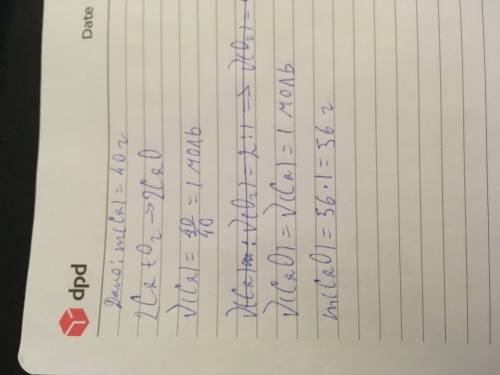 Date
dpd
Дано: m(Ca) = 40 г
2Ca + O₂ → 2CaO
√(Ca) = 40/40 = 1 моль
√(Ca) : √(O₂) = 2:1 => √(O₂) =
√(CaO) = √(Ca) = 1 моль
m(CaO) = 56 · 1 = 56 г